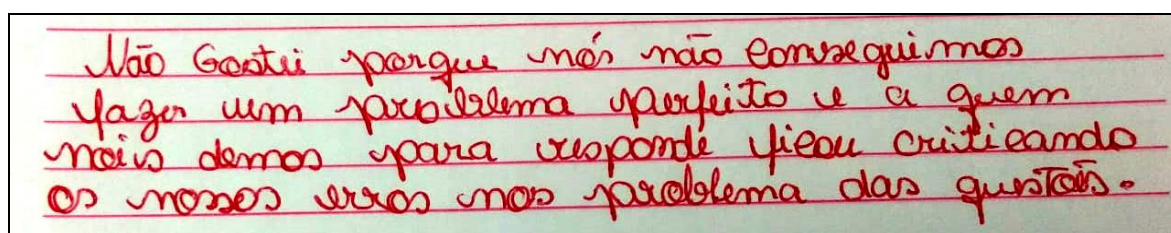 Não Gostei porque nós não conseguimos
fazer um problema perfeito e a quem
nóis demos para responde ficou criticando
os nossos erros nos problema das questões.